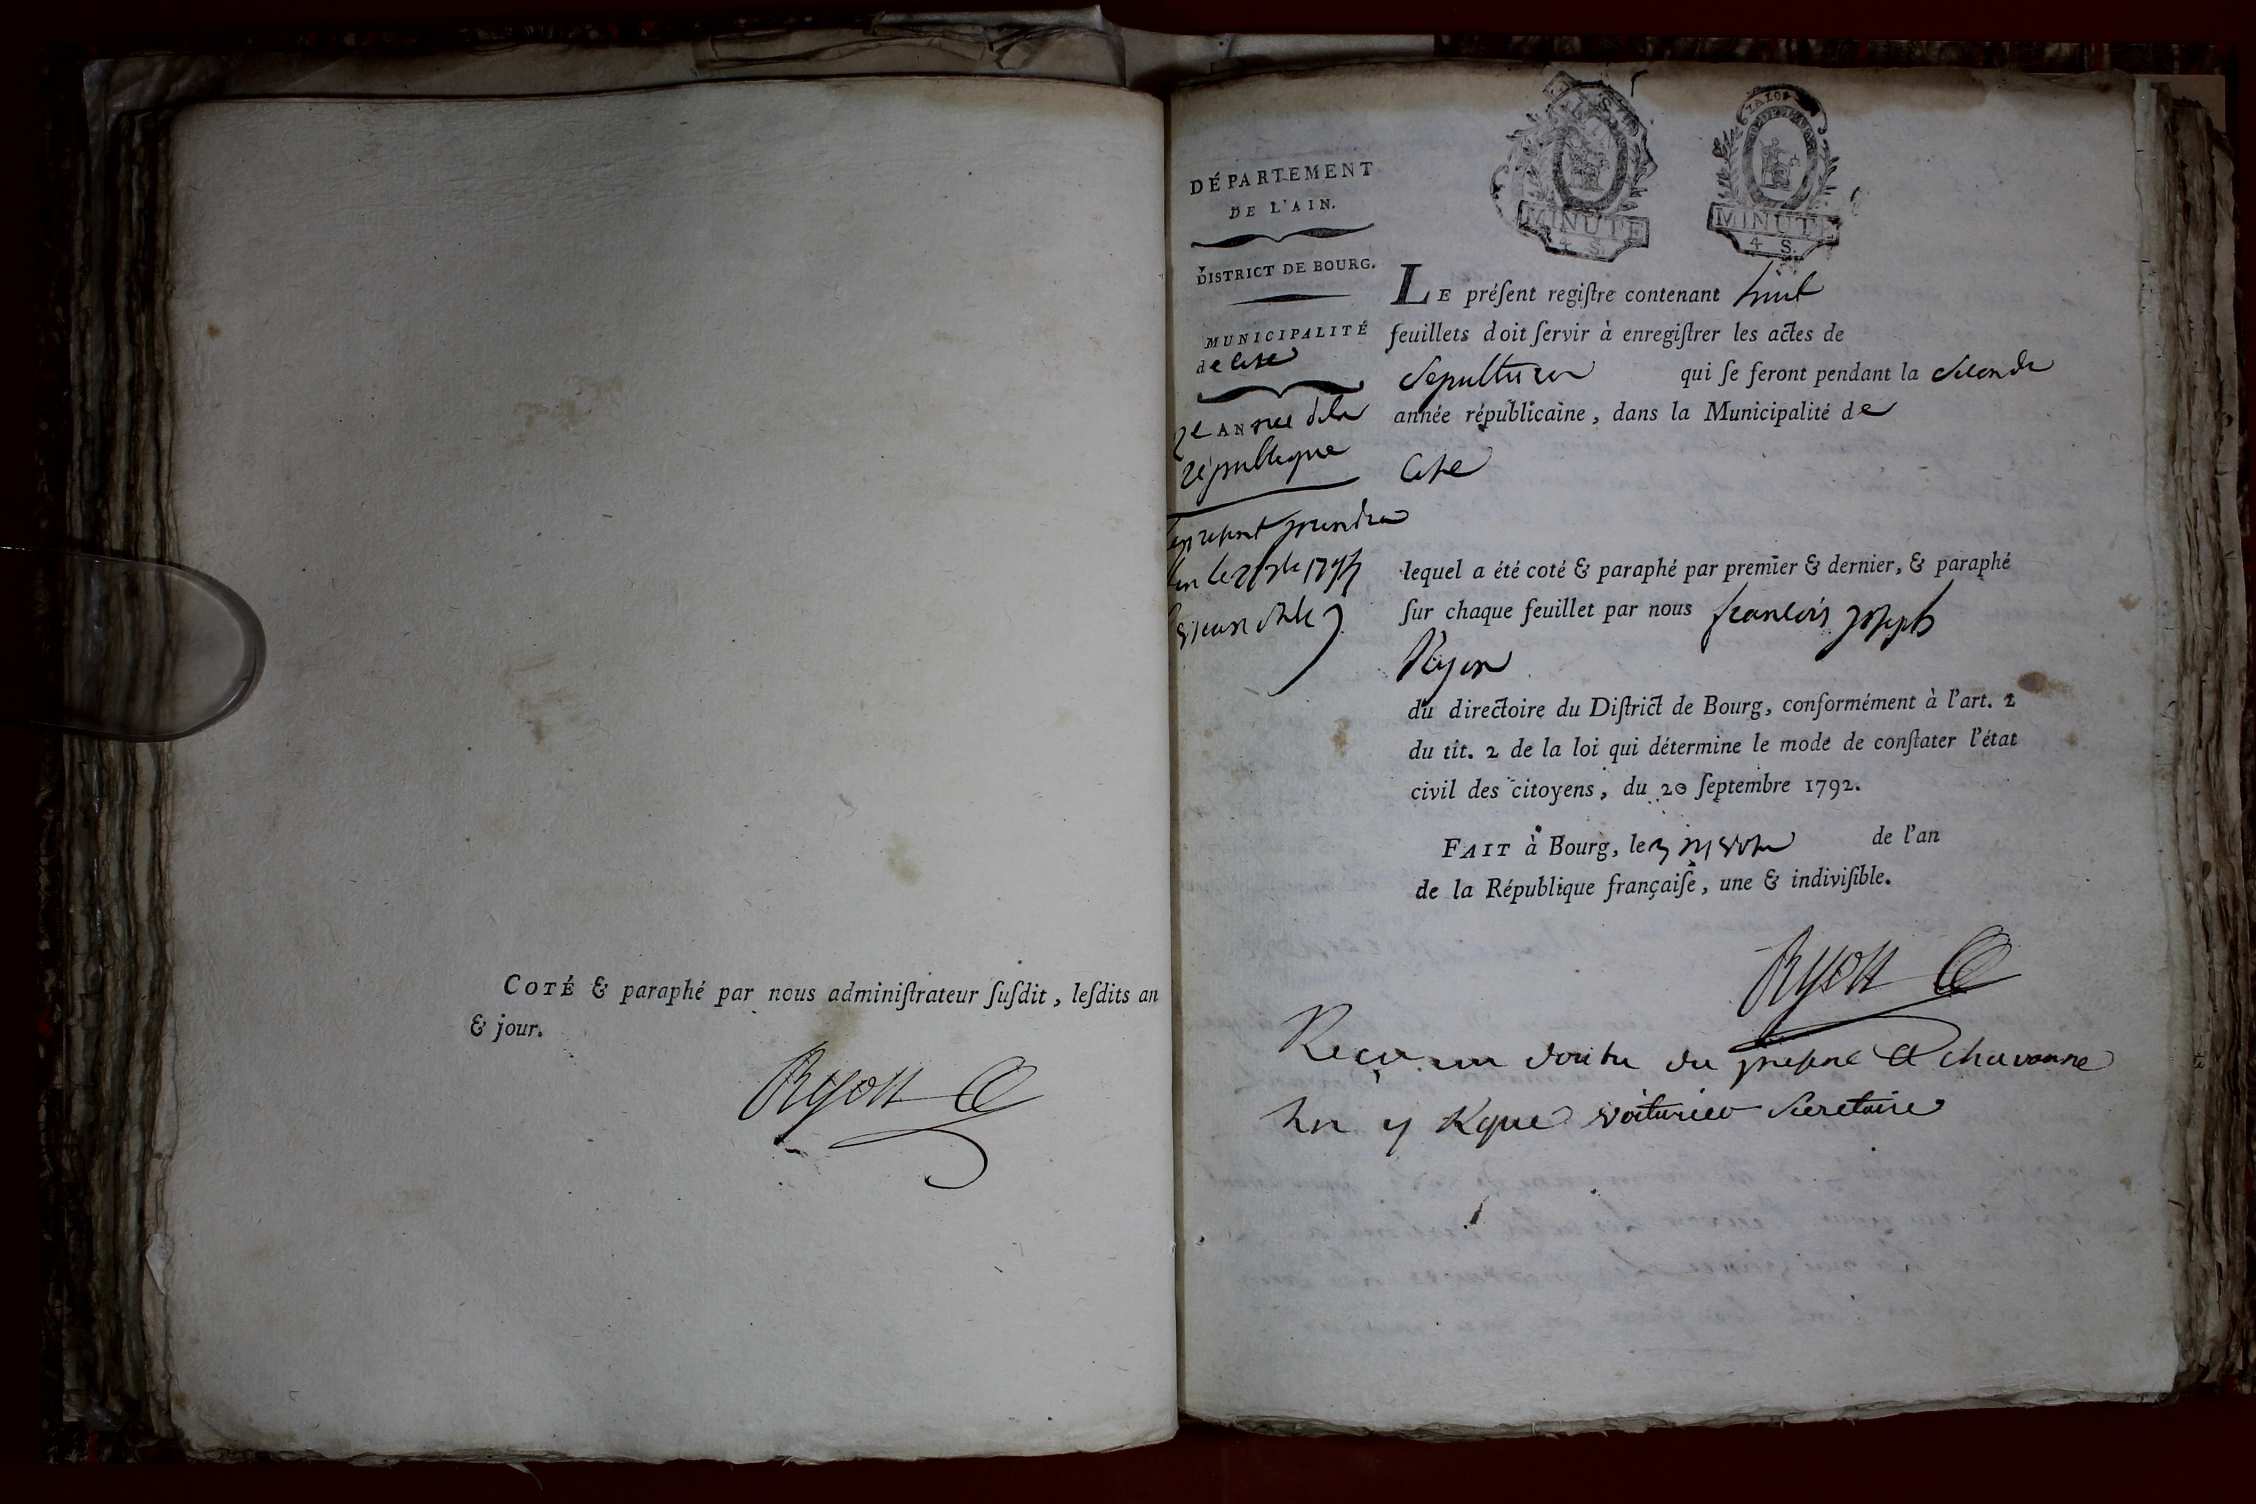 COTÉ & paraphé par nous adminiſtrateur ſuſdit, leſdits an
& jour.
Ryon
DÉPARTEMENT
DE L'AIN.
DISTRICT DE BOURG.
MUNICIPALITÉ
de Cise
2e ANnee dela
republique
MINUTE
4 S.
MINUTE
4 S.
LE préſent regiſtre contenant huit
feuillets doit ſervir à enregiſtrer les actes de
Sepultures qui ſe feront pendant la Seconde
année républicaine, dans la Municipalité de
Cise
lequel a été coté & paraphé par premier & dernier, & paraphé
ſur chaque feuillet par nous francois joseph
Ryon
du directoire du Diſtrict de Bourg, conformément à l'art. 2
du tit. 2 de la loi qui détermine le mode de conſtater l'état
civil des citoyens, du 20 ſeptembre 1792.
FAIT à Bourg, le de l'an
de la République françaiſe, une & indiviſible.
Ryon
Reçu un double du present a chavanne
voiturier Secretaire